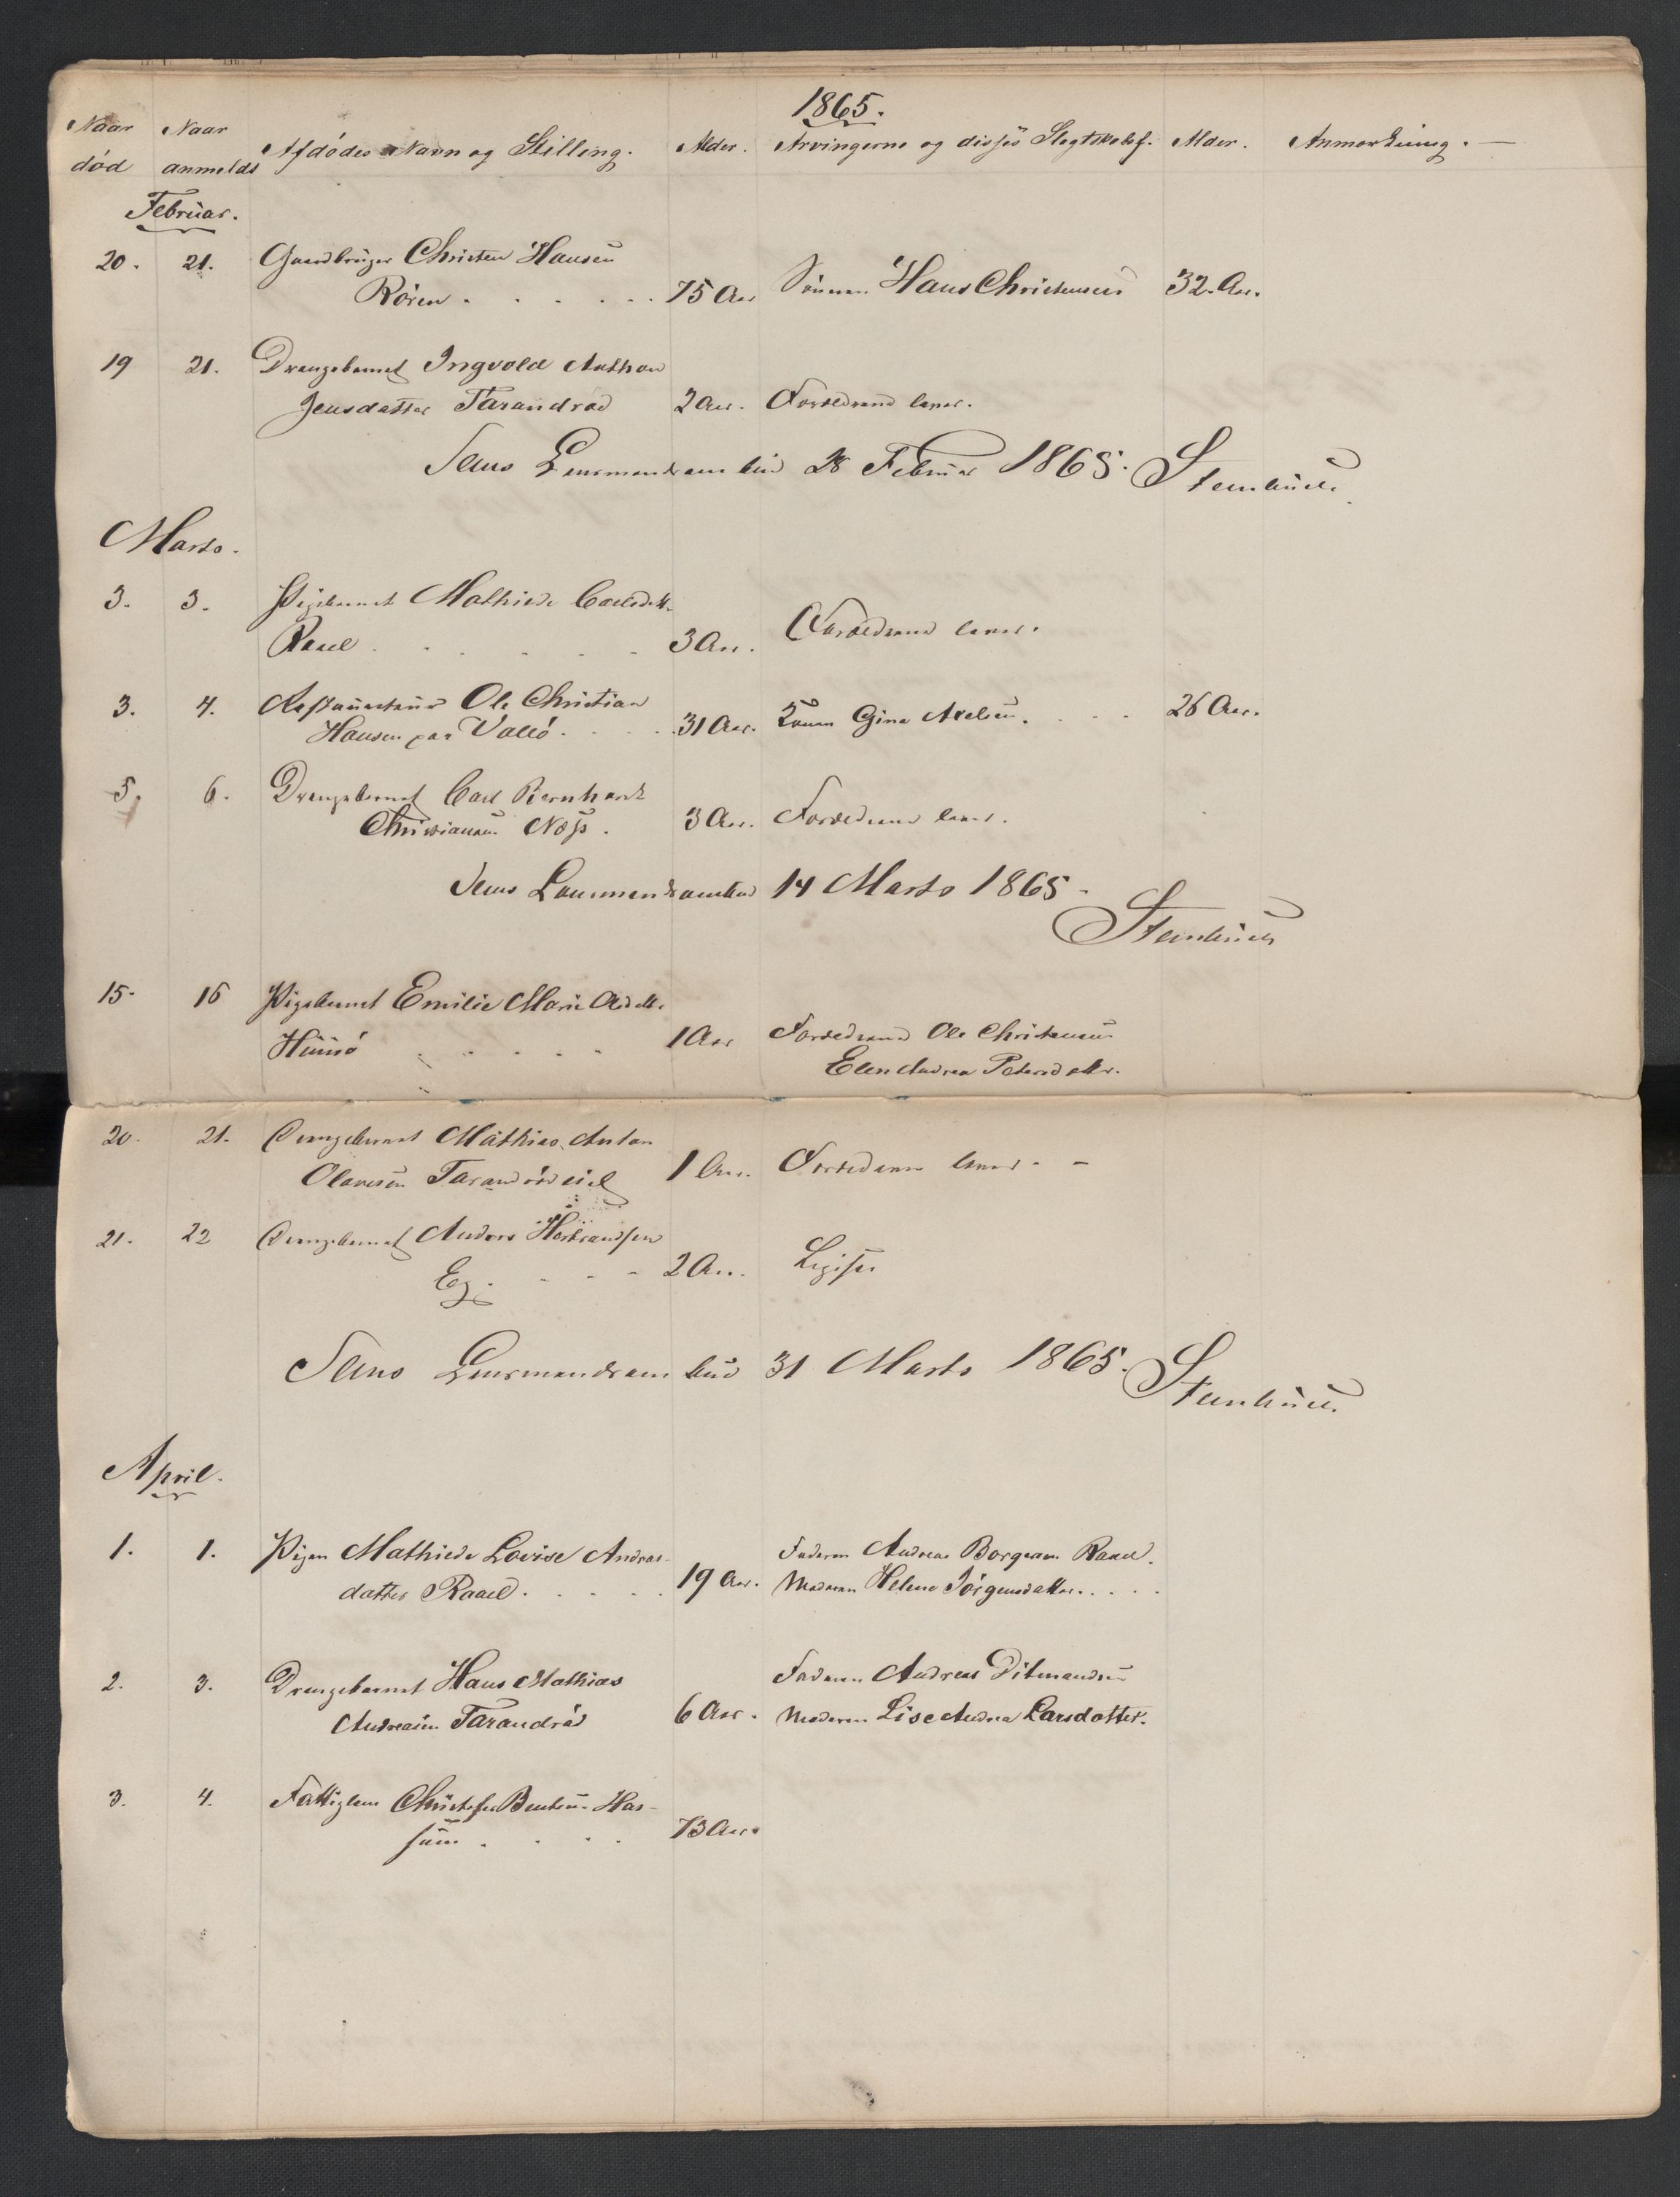 1865.
Naar død Naar anmeldt Afdødes Navn og Stilling. Alder. Arvingerne og disses Slegtskabsf. Alder. Anmærkning. —
Februar.
20. 21. Gaardbruger Christen Hansen
Røren . . . . . . 75 Aar Sønnen Hans Christensen 32 Aar.
19 21. Drengebarnet Ingvold Anthon
Jensdatter Tarandrød 2 Aar. Forældrene lever.
Sems Lensmandsombud 28 Februar 1865. Steenbuch
Marts.
3. 3. Pigebarnet Mathilde Carlsdtt.
Raael . . . . . . 3 Aar. Forældrene lever.
3. 4. Restaurateur Ole Christian
Hansen paa Vallø . . . . 31 Aar. Konen Gina Axelsen. . . . 26 Aar.
5. 6. Drengebarnet Carl Bernhard
Christiansen Næss . 3 Aar. Forældrene lever.
Sems Lensmandsombud 14 Marts 1865.
Steenbuch
15. 16 Pigebarnet Emilie Marie Olsdtt.
Husø . . . . . 1 Aar Forældrene Ole Christensen
Elen Andrea Petersdatter.
20. 21. Drengebarnet Mathias Anton
Olavesen Tarandrødeiet 1 Aar. Forældrene lever. -
21. 22 Drengebarnet Anders Herbrandsen
Eeg. . . . 2 Aar. Ligesaa
Sems Lensmandsombud 31 Marts 1865. Steenbuch
April.
1. 1. Pigen Mathilde Lovise Andreas-
datter Raael . . . . . 19 Aar. Faderen Andreas Borgersen Raael.
Moderen Helene Jørgensdatter. . . . .
2. 3. Drengebarnet Hans Mathias
Andreasen Tarandrød 6 Aar. Faderen Andreas Ditmandsen
Moderen Lise Andrea Larsdatter.
3. 4. Fattiglem Christofer Bentsen Has-
sum . . . . 73 Aar.